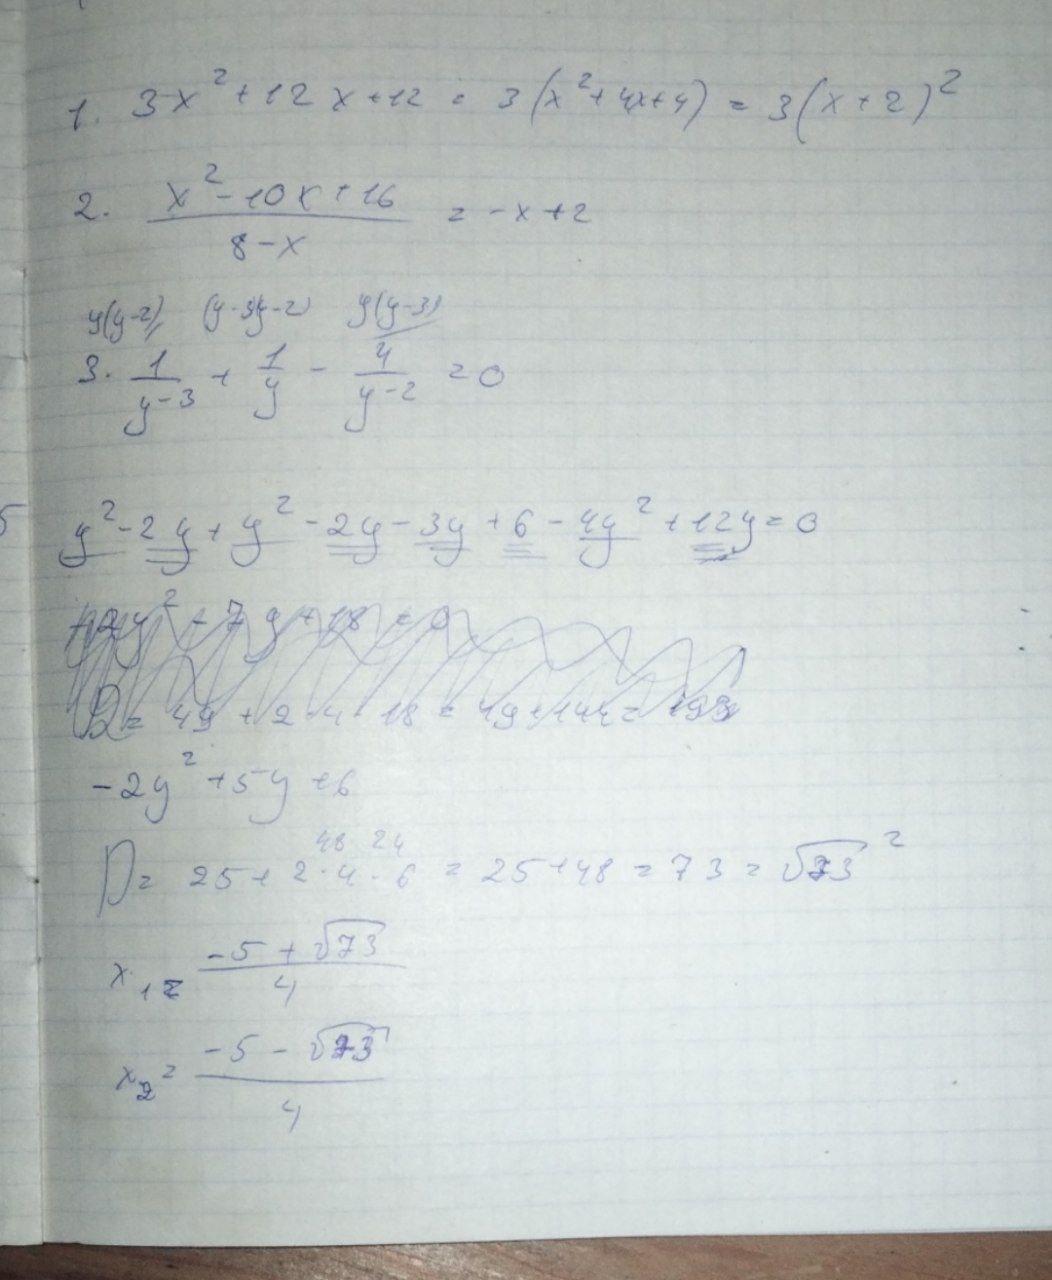 1. 3x² + 12x + 12 = 3(x² + 4x + 4) = 3(x + 2)²
2. (x² - 10x + 16)/(8 - x) = -x + 2
y(y-2) (y-3)(y-2) y(y-3)
3. 1/(y-3) + 1/y - 4/(y-2) = 0
5
y² - 2y + y² - 2y - 3y + 6 - 4y² + 12y = 0
-2y² + 5y + 6
48 24
D = 25 + 2·4·6 = 25 + 48 = 73 = √73²
x₁ = (-5 + √73)/4
x₂ = (-5 - √73)/4